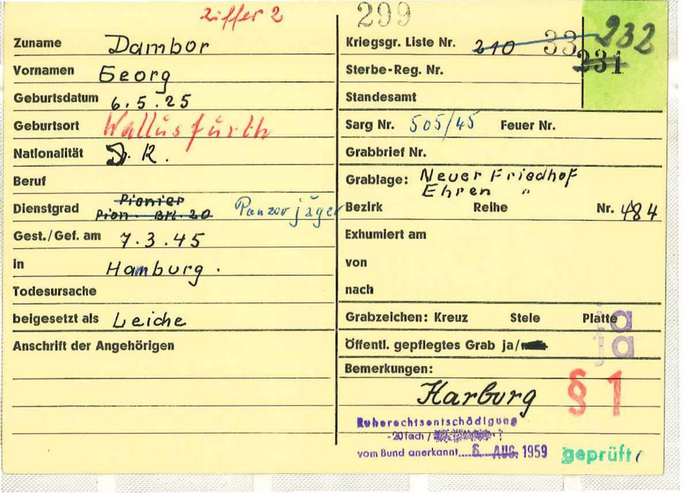 Ziffer 2
299
232
Zuname Dambor
Kriegsgr. Liste Nr. 210 33
231
Vornamen Georg
Sterbe-Reg. Nr.
Geburtsdatum 6.5.25
Standesamt
Geburtsort Wallusfurth
Sarg Nr. 505/45 Feuer Nr.
Nationalität D.R.
Grabbrief Nr.
Beruf
Grablage: Neuer Friedhof
Ehren "
Dienstgrad Pionier
Pion. Btl. 20 Panzerjäger
Bezirk Reihe Nr. 484
Gest./Gef. am 7.3.45
Exhumiert am
in Hamburg.
von
Todesursache
nach
beigesetzt als Leiche
Grabzeichen: Kreuz Stele Platte ja
Anschrift der Angehörigen
Öffentl. gepflegtes Grab ja/ ja
Bemerkungen:
Harburg
§ 1
Ruherechtsentschädigung
-20fach /
vom Bund anerkannt....6. AUG. 1959
geprüft